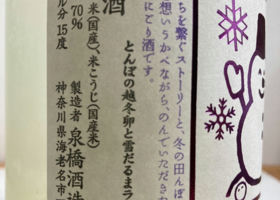 ちを繋ぐストーリーと、冬の田んぼ
想いうかべながら、のんでいただきた
にごり酒です。
とんぼの越冬卵と雪だるまラ
酒
米(国産)、米こうじ(国産米)
70%
ル分 15度
製造者 泉橋酒造
神奈川県海老名市